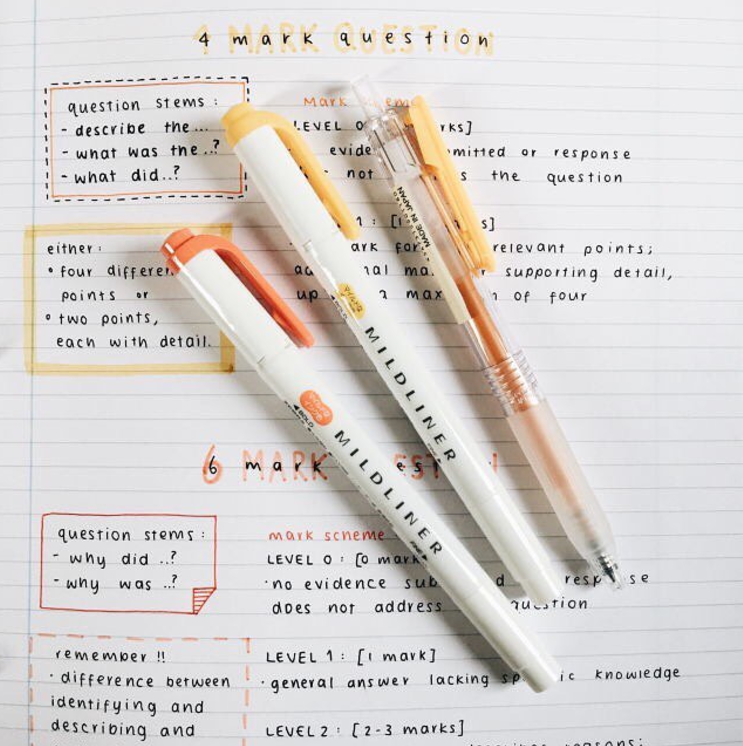 4 mark question
4 MARK QUESTION
question stems:
- describe the...
- what was the..?
- what did..?
mark
LEVEL 0
evide mitted or response
not the question
either:
• four differen
points or
• two points,
each with detail.
1: [
ark for relevant points;
ad nal ma supporting detail,
up a max of four
MADE IN JAPAN
MILDLINER
BOLD
MILDLINER
6 mark
question stems:
- why did ..?
- why was ..?
mark scheme
LEVEL 0: [0 mark
· no evidence sub d response
does not address question
remember !!
· difference between
identifying and
describing and
LEVEL 1: [1 mark]
· general answer lacking specific knowledge
LEVEL 2: [2-3 marks]
reasons: